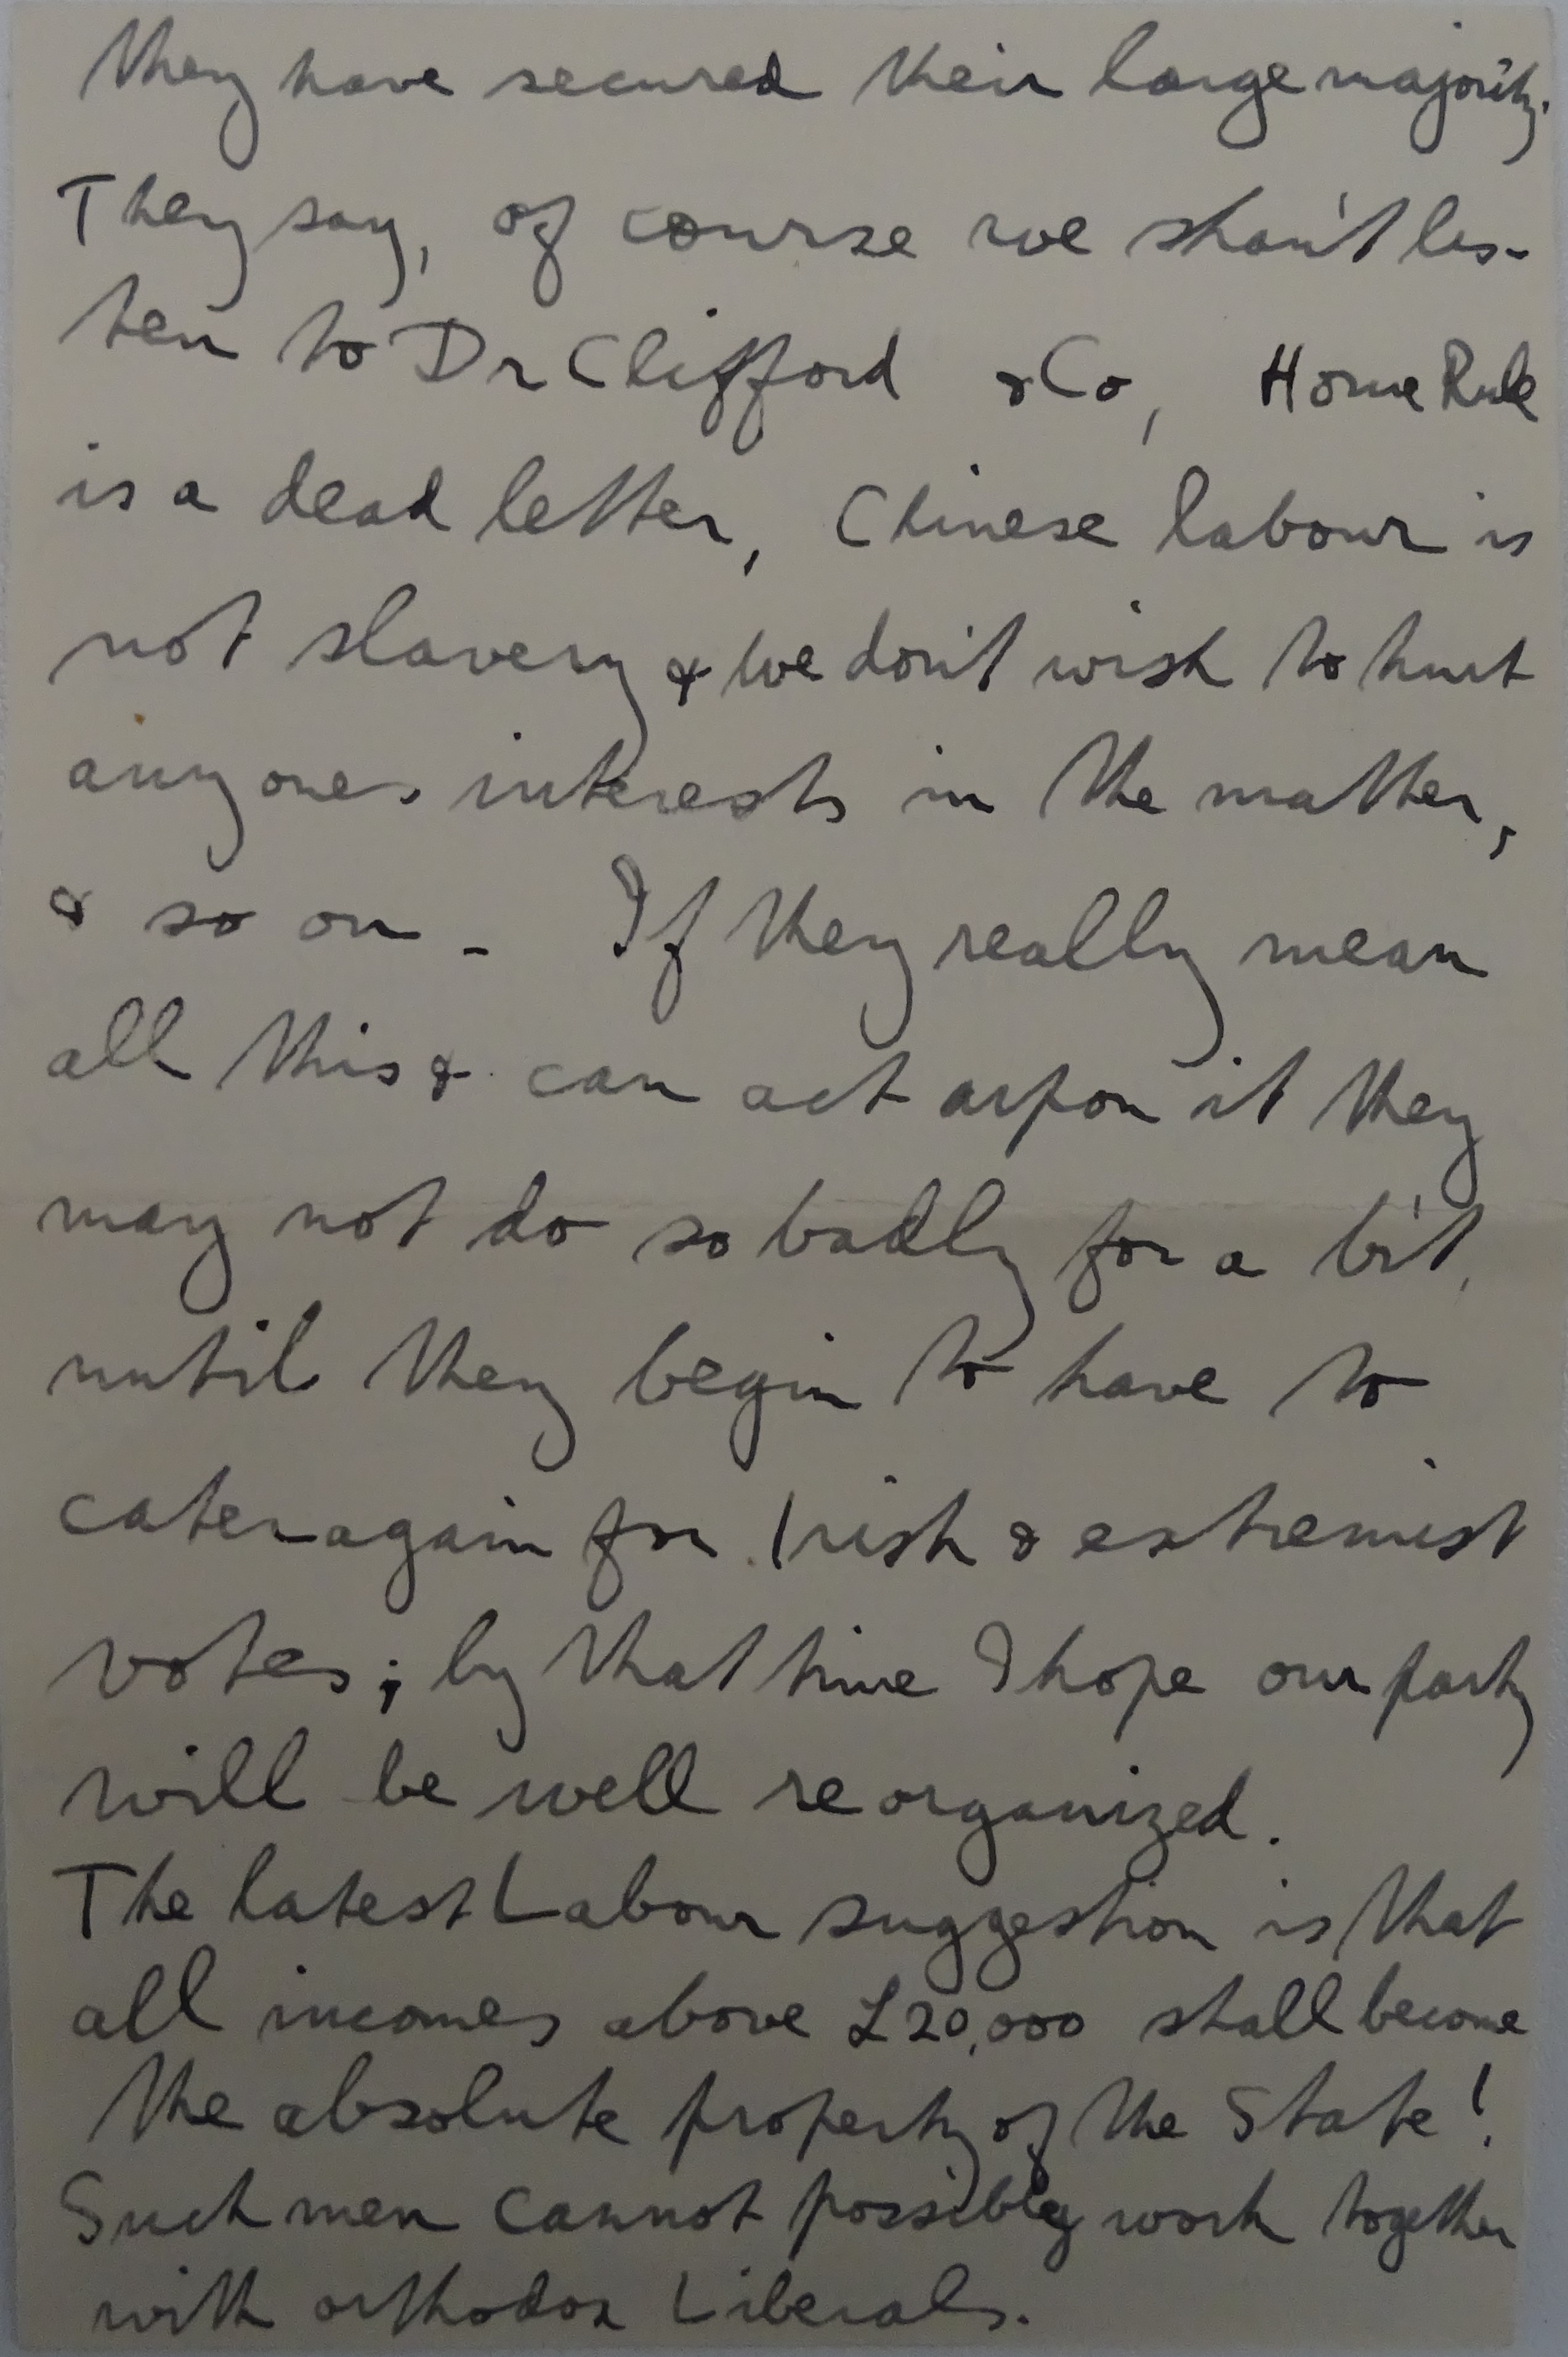 they have secured their large majority.
They say, of course we shan't lis-
ten to Dr Clifford & Co, Home Rule
is a dead letter, Chinese labour is
not slavery & we don't wish to hurt
anyones interests in the matter,
& so on - If they really mean
all this & can act upon it they
may not do so badly for a bit,
until they begin to have to
cater again for Irish & extremist
votes; by that time I hope our party
will be well reorganized.
The latest Labour suggestion is that
all incomes above £20,000 shall become
the absolute property of the State!
Such men cannot possibly work together
with orthodox Liberals.